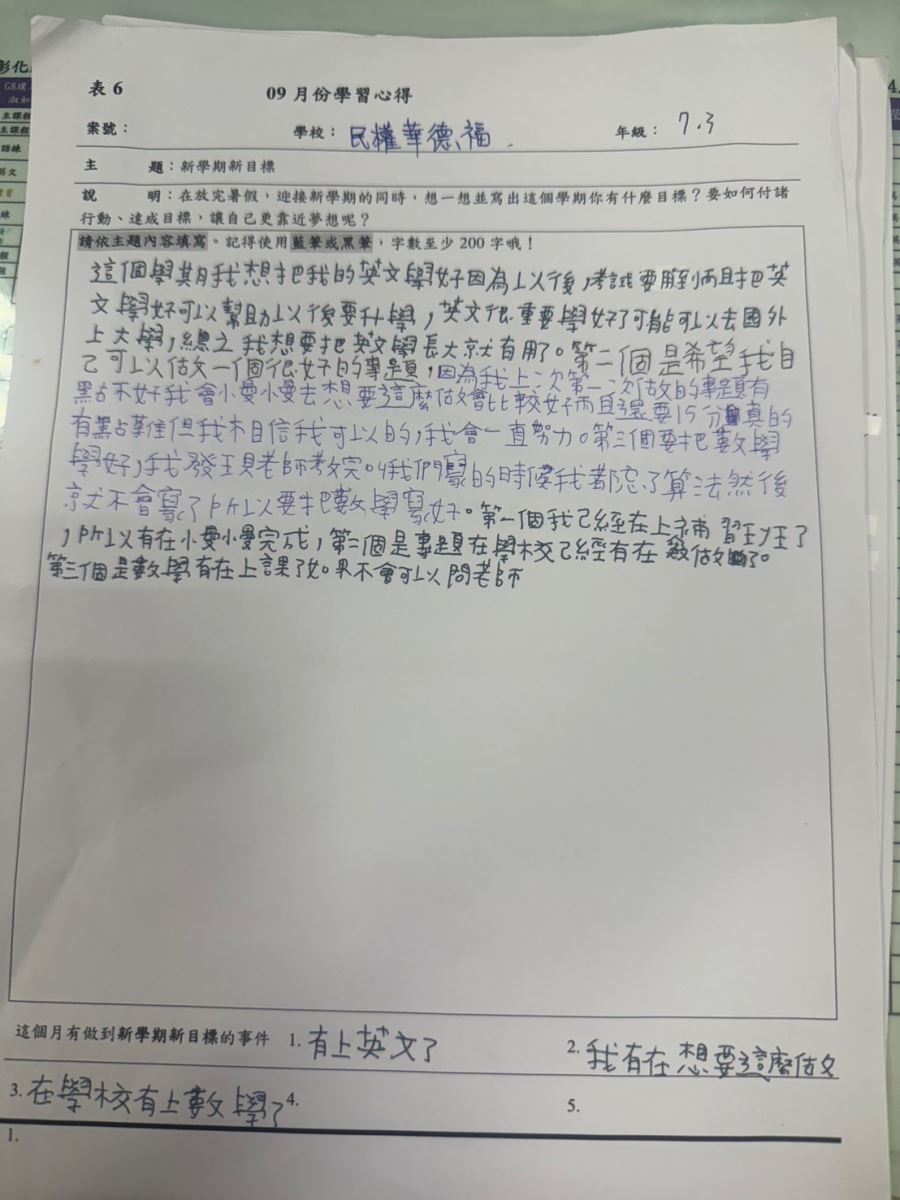 表 6
09 月份學習心得
案號：
學校： 民權華德福
年級： 7.3
主 題：新學期新目標
說 明：在放完暑假，迎接新學期的同時，想一想並寫出這個學期你有什麼目標？要如何付諸
行動、達成目標，讓自己更靠近夢想呢？
請依主題內容填寫。記得使用藍筆或黑筆，字數至少 200 字哦！
這個學期我想把我的英文學好因為以後，考試要用到而且把英
文學好可以幫助以後要升學，英文很重要學好了可能可以去國外
上大學，總之我想要把英文學長大就有用了。第二個是希望我自
己可以做一個很好的專題，因為我上次第一次做的專題有
點不好我會慢慢去想要這麼做會比較好而且還要15分真的
有點難但我相信我可以的，我會一直努力。第三個要把數學
學好，我發現老師教完叫我們寫的時候我都忘了算法然後
就不會寫了所以要把數學寫好。第一個我已經在上補習班了
，所以有在慢慢完成，第二個是專題在學校已經有在做了。
第三個是數學有在上課了如果不會可以問老師
這個月有做到新學期新目標的事件
1. 有上英文了
2. 我有在想要這麼做
3. 在學校有上數學了
4.
5.
1.
彰化
主課程
主課程
語練
英文